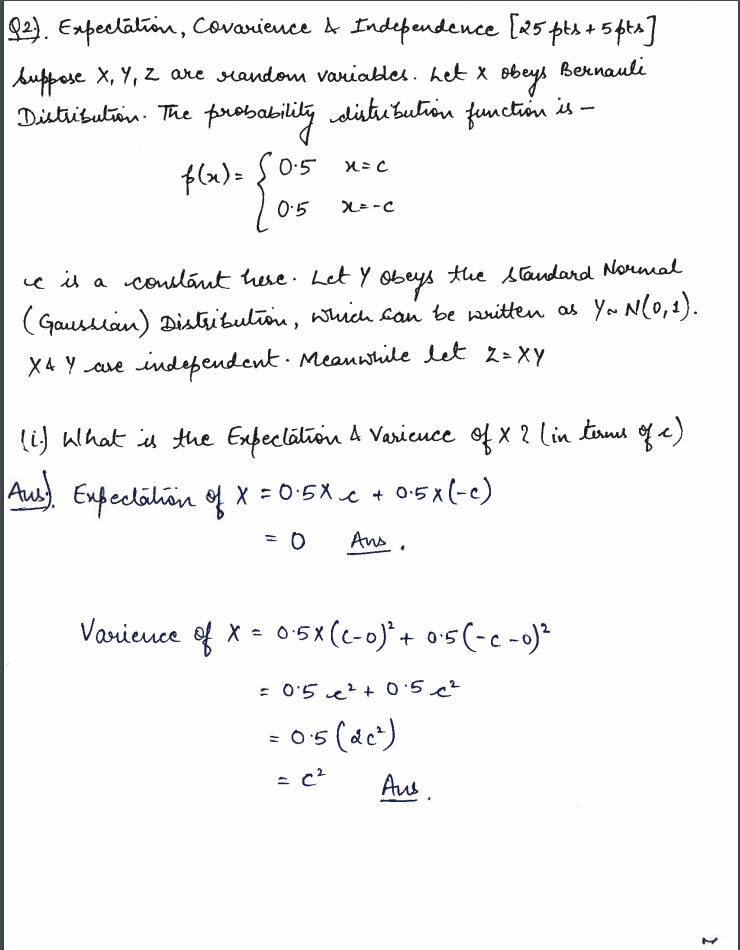 Q2). Expectation, Covarience & Independence [25 pts + 5 pts]
Suppose X, Y, Z are random variables. Let X obeys Bernauli
Distribution. The probability distribution function is –
p(x) = { 0.5 x = c
0.5 x = -c
c is a constant here. Let Y obeys the standard Normal
(Gaussian) Distribution, which can be written as Y ~ N(0,1).
X & Y are independent. Meanwhile let Z = XY
(i.) What is the Expectation & Varience of X ? (in terms of c)
Ans). Expectation of X = 0.5 x c + 0.5 x (-c)
= 0 Ans.
Varience of X = 0.5 x (c-0)² + 0.5 (-c-0)²
= 0.5 c² + 0.5 c²
= 0.5 (2c²)
= c² Ans.